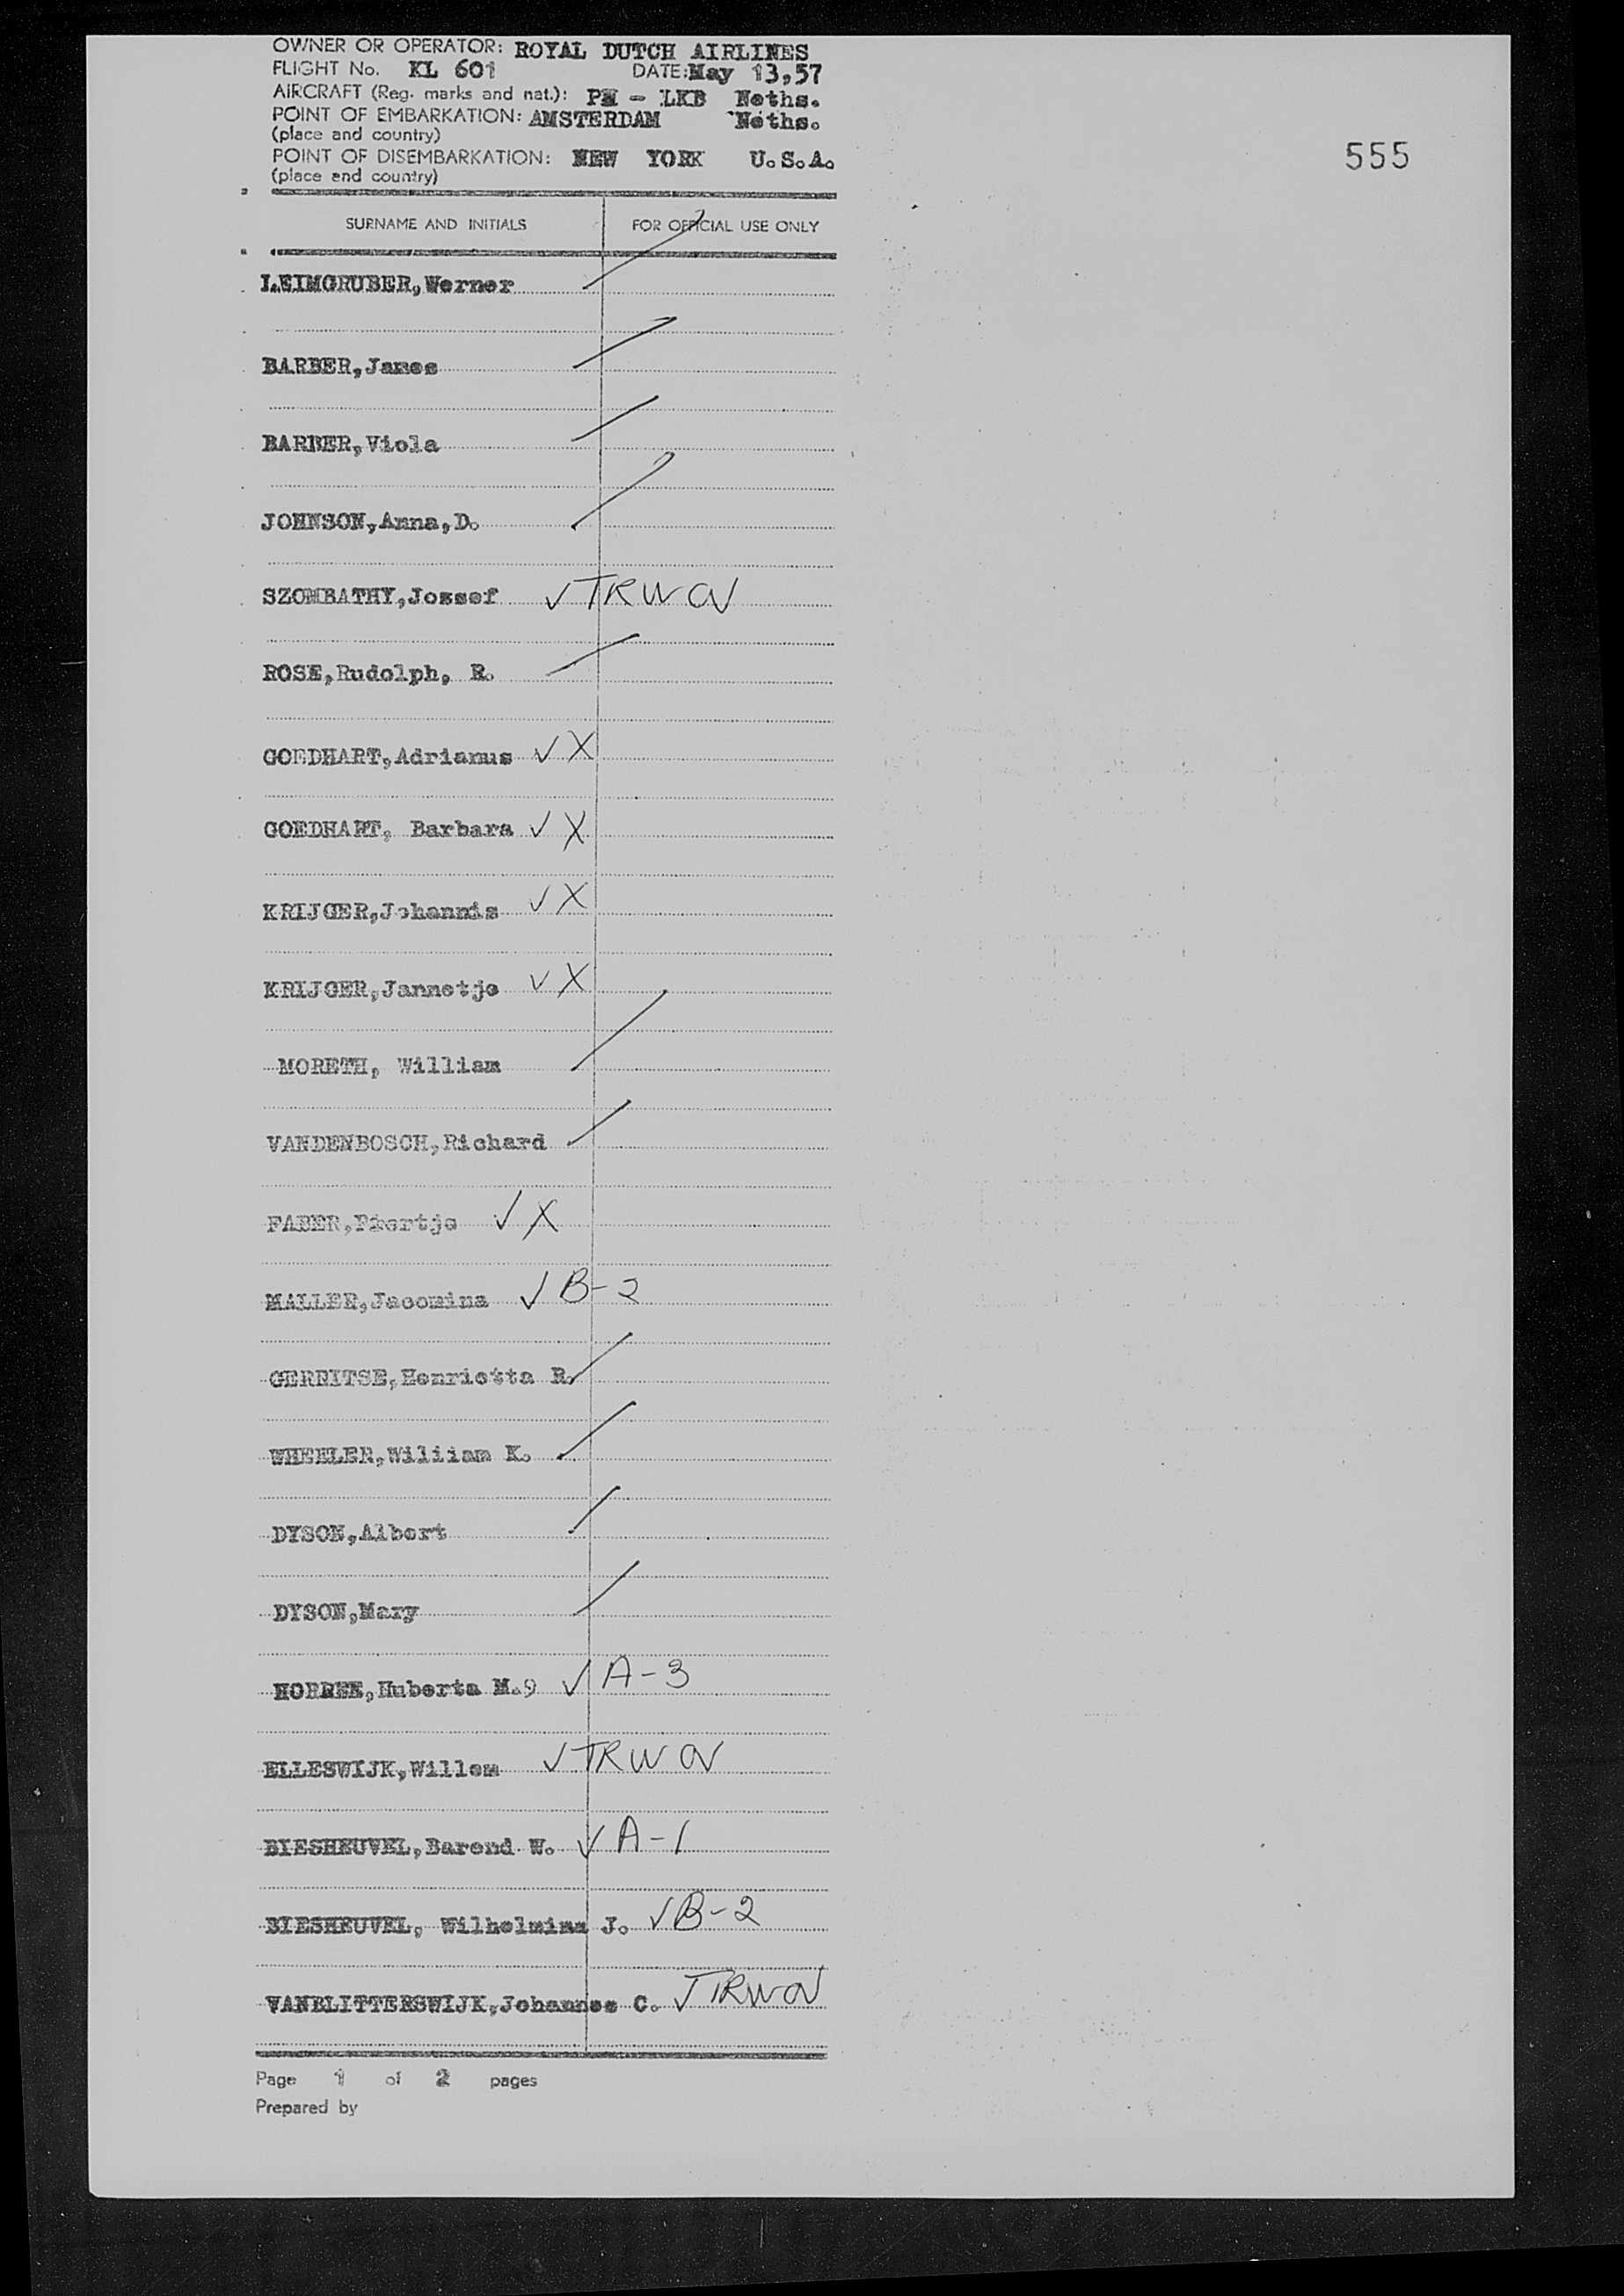 OWNER OR OPERATOR: ROYAL DUTCH AIRLINES
FLIGHT No. KL 601 DATE: May 13,57
AIRCRAFT (Reg. marks and nat.): PH - LKB Neths.
POINT OF EMBARKATION: AMSTERDAM Neths.
(place and country)
555
POINT OF DISEMBARKATION: NEW YORK U.S.A.
(place and country)
SURNAME AND INITIALS FOR OFFICIAL USE ONLY
LEIMGRUBER,Werner
BARBER,James
BARBER,Viola
JOHNSON,Anna,D.
SZOMBATHY,Jossef ✓ TRWOV
ROSE,Rudolph, R.
GOEDHART,Adrianus ✓ X
GOEDHART, Barbara ✓ X
KRIJGER,Johannis ✓ X
KRIJGER,Jannetje ✓ X
MORETH, William
VANDENBOSCH,Richard
FABER,Piertje ✓ X
MALLEE,Jacomina ✓ B-2
GERRITSE,Henrietta R.
WHEELER,William K.
DYSON,Albert
DYSON,Mary
HORREE,Huberta M. ✓ A-3
ELLESWIJK,Willem ✓ TRWOV
BIESHEUVEL,Barend W. ✓ A-1
BIESHEUVEL, Wilhelmina J. ✓ B-2
VANBLITTERSWIJK,Johannes C. ✓ TRWOV
Page 1 of 2 pages
Prepared by